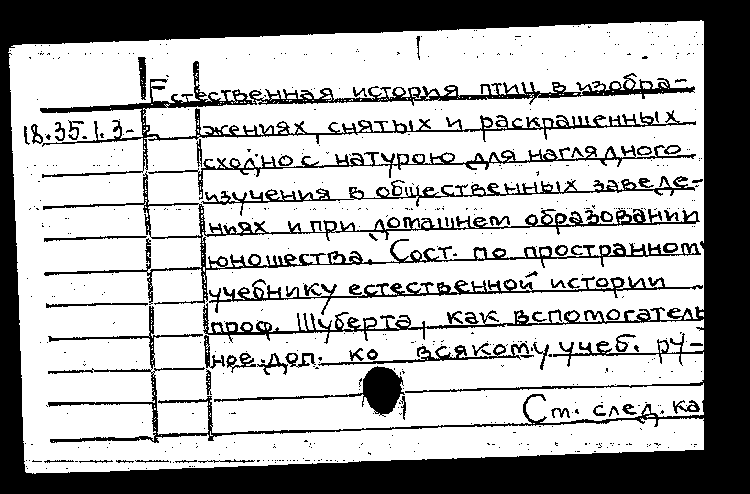 Естественная история птиц в изобра-
18.35.1.3-2 жениях, снятых и раскрашенных
сходно с натурою для наглядного
изучения в общественных заведе-
ниях и при домашнем образовании
юношества. Сост. по пространному
учебнику естественной истории
проф. Шуберта, как вспомогатель
ное доп. ко всякому учеб. ру-
См. след. ка